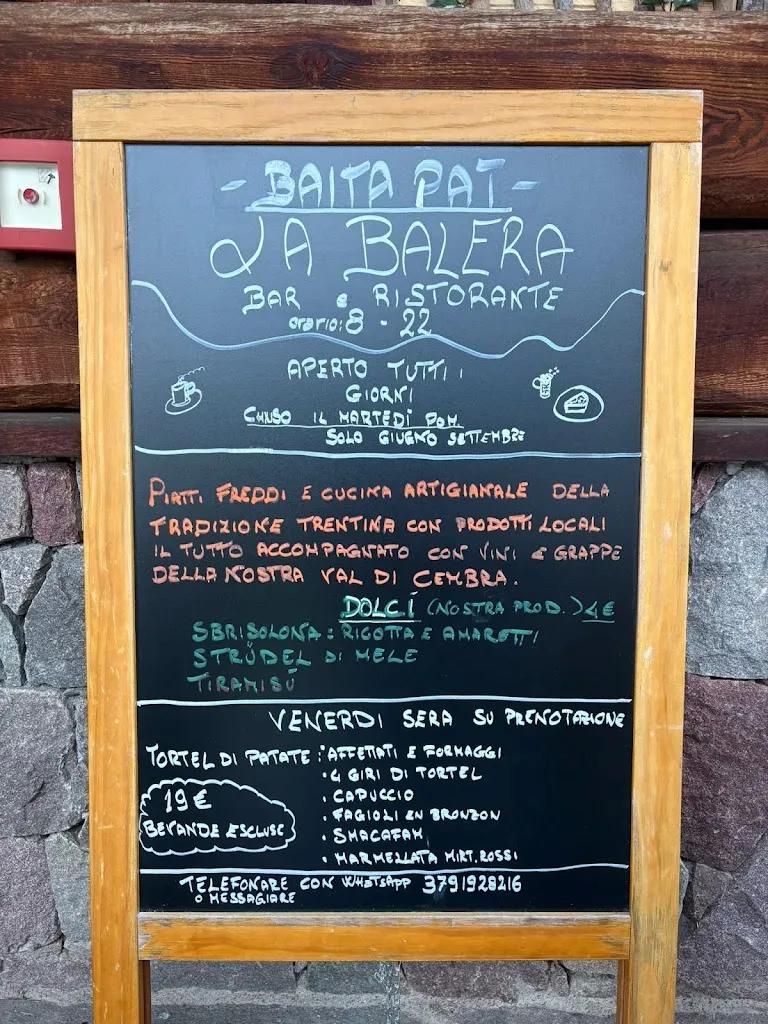 - BAITA PAT -
LA BALERA
BAR e RISTORANTE
orario: 8 - 22
APERTO TUTTI I
GIORNI
CHIUSO IL MARTEDÌ POM.
SOLO GIUGNO SETTEMBRE
PIATTI FREDDI E CUCINA ARTIGIANALE DELLA
TRADIZIONE TRENTINA CON PRODOTTI LOCALI
IL TUTTO ACCOMPAGNATO CON VINI E GRAPPE
DELLA NOSTRA VAL DI CEMBRA.
DOLCI (NOSTRA PROD.) 4€
SBRISOLONA: RICOTTA E AMARETTI
STRÜDEL DI MELE
TIRAMISÚ
VENERDI SERA SU PRENOTAZIONE
TORTEL DI PATATE: • AFFETTATI E FORMAGGI
• 4 GIRI DI TORTEL
• CAPUCCIO
• FAGIOLI EN BRONZON
• SMACAFAM
• MARMELLATA MIRT. ROSSI
19€
BEVANDE ESCLUSE
TELEFONARE CON WHATSAPP 3791928216
O MESSAGIARE